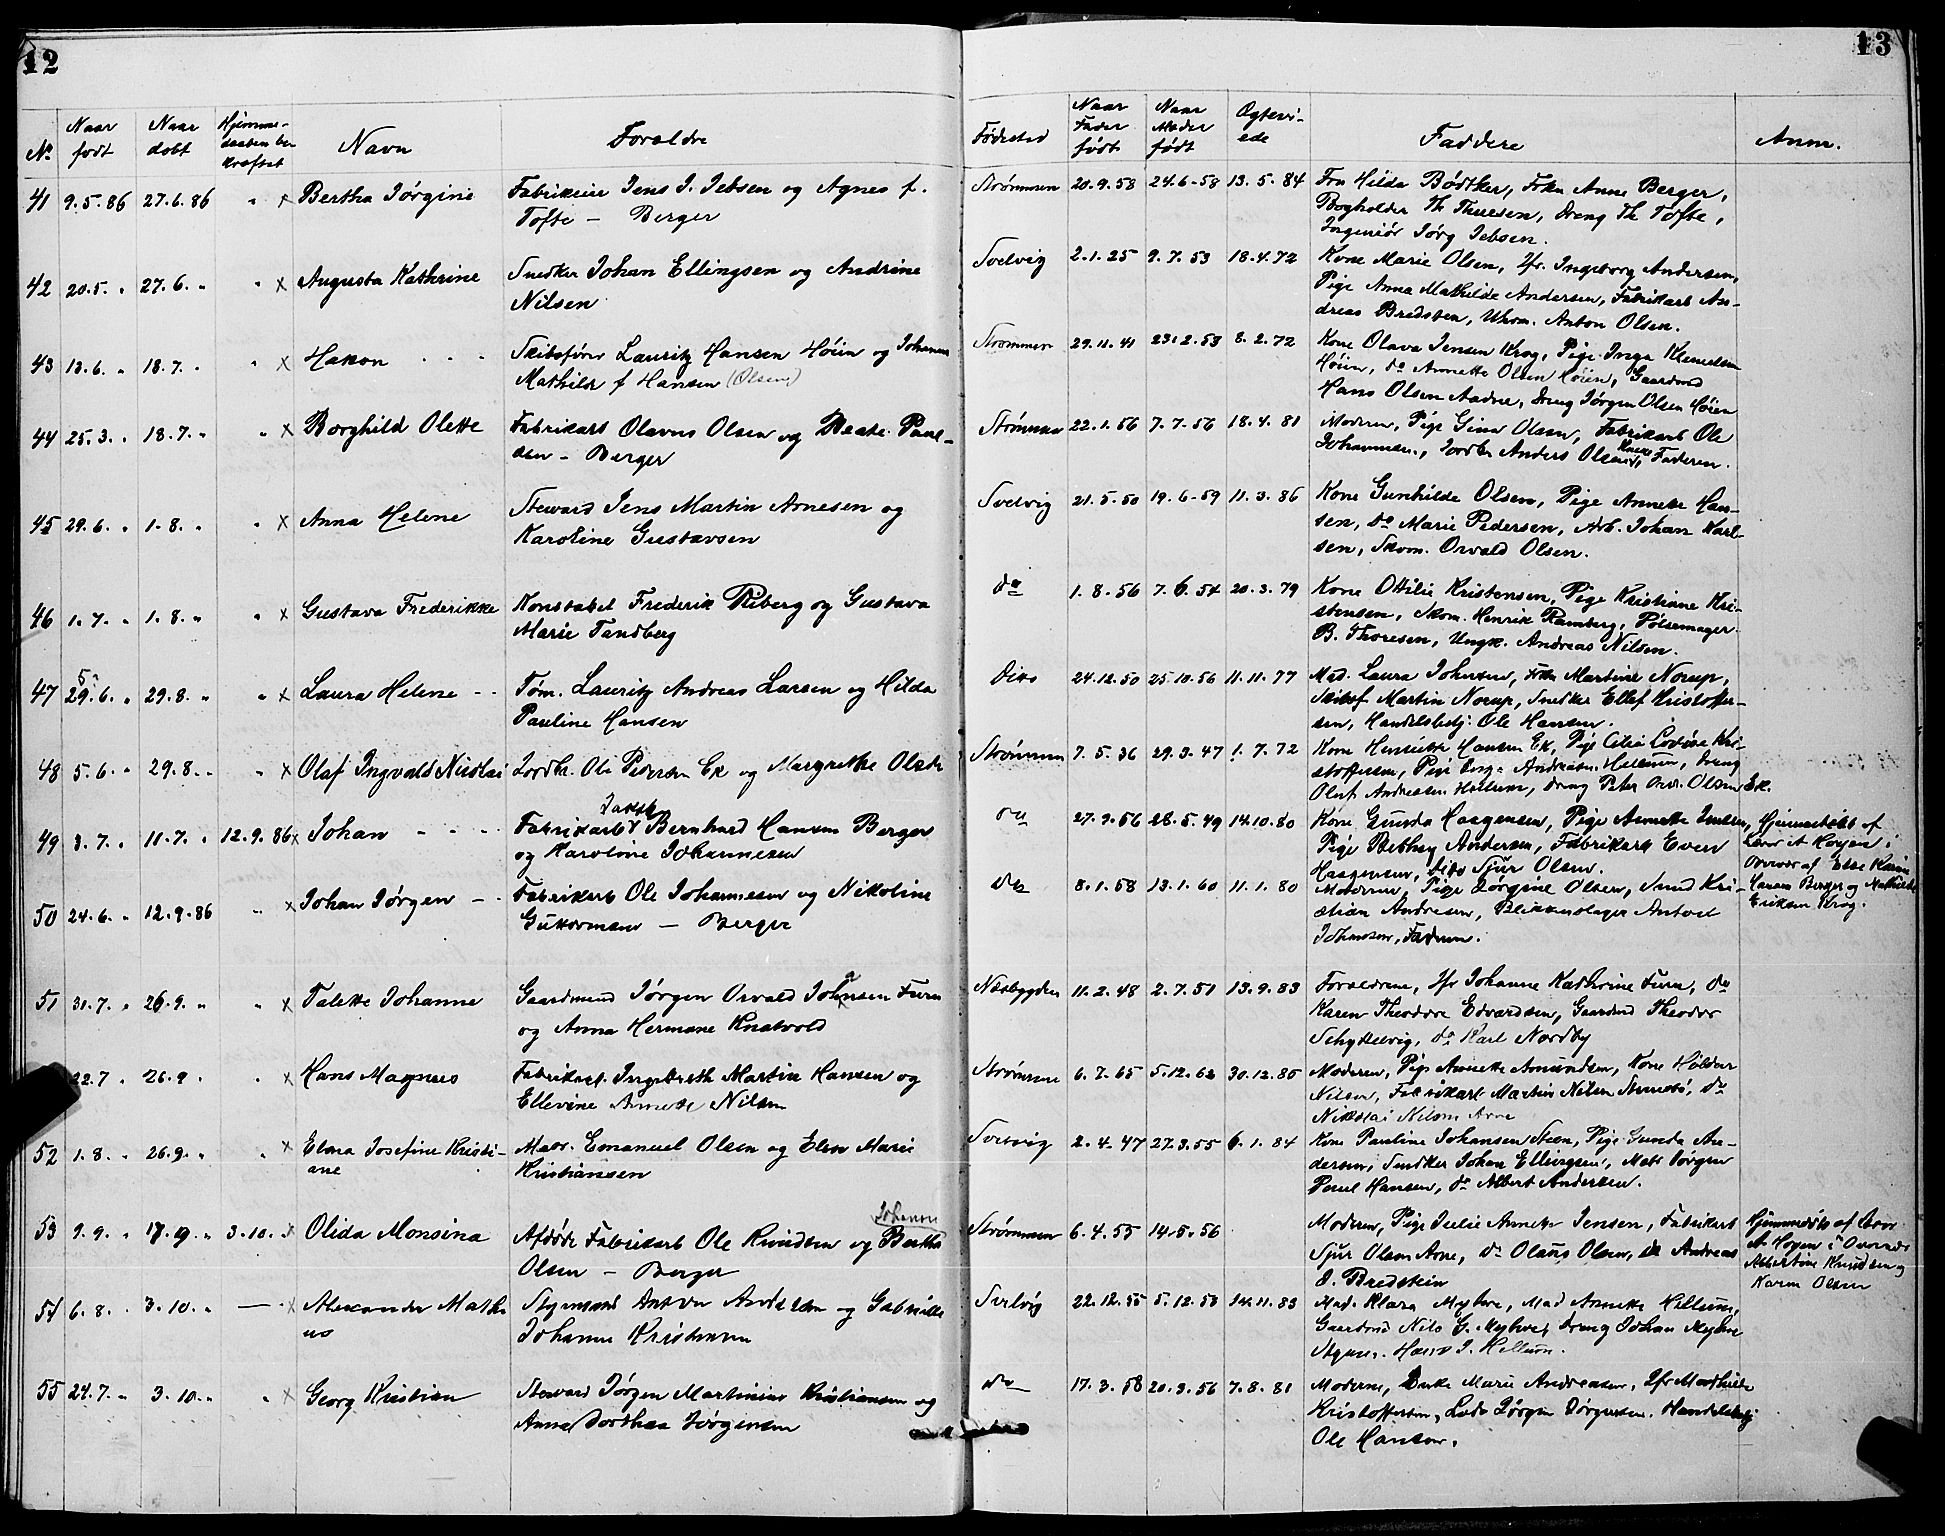 12
No
Naar født
Naar døbt
Hjemme-daaben be kræftet
Navn
Forældre
41 9.5.86 27.6.86 " x Bertha Jørgine
Fabrikeier Jens J. Jebsen og Agnes f.
Tofte — Berger
42 20.5. " 27.6. " " x Augusta Kathrine
Snedker Johan Ellingsen og Andrine
Nilsen
43 13.6. " 18.7. " " x Hakon
Skibsfører Lauritz Hansen Höien og Johanne
Mathilde f Hansen (Olsen)
44 25.3. " 18.7. " " x Borghild Olette
Fabrikarb Olavus Olsen og Beate Paul-
sen — Berger
45 29.6. " 1.8. " " x Anna Helene
Steward Jens Martin Arnesen og
Karoline Gustavsen
46 1.7. " 1.8. " " x Gustava Frederikke
Konstabel Frederik Riberg og Gustava
Marie Tandberg
5
47 29.6. " 29.8. " " x Laura Helene
Tøm. Lauritz Andreas Larsen og Hilda
Pauline Hansen
48 5.6. " 29.8. " " x Olaf Ingvald Nicolai
Jordbr. Ole Pedersen Ek og Margrethe Olsen
49 3.7. " 11.7. " 12.9.86 x Johan
Fabrikarb Bernhard Hansen Berger
og Karoline Johannesen
50 24.6. " 12.9.86 " x Johan Jørgen
Fabrikarb Ole Johannesen og Nikoline
Guttormsen — Berger
51 31.7. " 26.9. " " x Talette Johanne
Gaardmand Jørgen Osvald Johnsen Furu
og Anna Hermane Knatvold
22.7 " 26.9 " " x Hans Magnus
Fabrikarb. Ingebreth Martin Hansen og
Ellevine Annette Nilsen
52 1.8. " 26.9. " " x Elma Josefine Kristi-
ane
Matr. Emanuel Olsen og Elen Marie
Kristiansen
53 9.9. " 17.9. " 3.10. " x Olida Monsina
Johanne
Afdøde Fabrikarb Ole Knudsen og Bertha
Olsen — Berger
54 6.8. " 3.10. " — x Alexander Math-
us
Styrmand Anton Andersen og Gabrielle
Johanne Kristensen
55 24.7. " 3.10. " " x Georg Kristian
Steward Jørgen Martinius Kristiansen og
Anne Dorthea Jørgensen
13
Fødested
Naar Fader født
Naar Moder født
Ægtevi-ede
Faddere
Anm.
Strømmen 20.9.58 24.6-58 13.5.84
Fru Hilda Bødtker, Frkn Anne Berger,
Bogholder Th Thuesen, Dreng Th Tofte,
Ingeniør Jørg Jebsen.
Svelvig 2.1.25 9.7.53 18.4.72
Kone Marie Olsen, Jfr. Ingeborg Andersen,
Pige Anna Mathilde Andersen, Fabrikarb An-
dreas Bredsten, Uhrm. Anton Olsen.
Strømmen 29.11.41 23.2.53 8.2.72
Kone Olava Jensen Krog, Pige Inga Klemedsen
Höien, do Annette Olsen Höien, Gaardmd
Hans Olsen Aadne, Dreng Jørgen Olsen Höien
Strømmen 22.1.56 7.7.56 18.4.81
Moderen, Pige Gina Olsen, Fabrikarb Ole
Johannesen, Jordbr Anders Olsen, Faderen.
Svelvig 21.5.50 19.6-59 11.3.86
Kone Gunhilde Olsen, Pige Annette Han-
sen, do Marie Pedersen, Arb. Johan Karl-
sen, Skom. Osvald Olsen.
do 1.8.56 7.6.54 20.3.79
Kone Ottilie Kristensen, Pige Kristiane Kri-
stensen, Skom. Henrik Ramberg, Pølsemager
B. Thoresen, Ungk. Andreas Nilsen.
Dito 24.12.50 25.10.56 11.11.77
Mad. Laura Johnsen, Frk Martine Norup,
Skibsf Martin Norup, Snedker Ellef Kristoffer-
sen, Handelsbetj. Ole Hansen.
Strømmen 7.5.36 29.3.47 1.7.72
Kone Henriette Hansen Ek, Pige Cilia Lovise Kri-
stoffersen, Pige Andreasen Hellum, Dreng
Oluf Andreasen Hellum, Dreng Peter Olsen Ek.
do 27.9.56 28.5.49 14.10.80
Kone Gunda Haagensen, Pige Annette Jensen,
Pige Bethzy Andersen, Fabrikarb Even
Haagensen, Dito Sjur Olsen.
Hjemmedøbt af
Lærer A Høyen i
Overvær af Else Karine
Hansen Berger og Mathilde
Eriksen Krog.
do 8.1.58 13.1.60 11.1.80
Moderen, Pige Jørgine Olsen, Smed Kri-
stian Andresen, Blikkenslager Anton
Johansen, Faderen.
Næsbygden 11.2.48 2.7.51 13.9.83
Forældrene, Jfr Johanne Kathrine Furu, do
Karen Theodore Edvardsen, Gaardmd Theodor
Schyttelvig, do Karl Nordby
Strømmen 6.7.65 5.12.62 30.12.85
Moderen, Pige Annette Amundsen, Kone Hildur
Nilsen, Fabrikarb Martin Nilsen, do
Nikolai Nilsen Arne
Svelvig 2.4.47 27.3.55 6.1.84
Kone Pauline Johansen Steen, Pige Gunda An-
dersen, Snedker Johan Ellingsen, Matr Jørgen
Paul Hansen, do Albert Andersen.
Strømmen 6.4.55 14.5.56
Moderen, Pige Julie Annette Jensen, Fabrikarb
Sjur Olsen Arne, do Olaus Olsen, do Andreas
J. Bredstein
Hjemmedøbt af Lærer
A Høyen i Overvær
Albertine Knudsen og
Karen Olsen
Svelvig 22.12.55 5.12.58 14.11.83
Mad. Klara Myhre, Mad Annette Hellum,
Gaardmd Nils G. Myhre, Dreng Johan Myhre
Styrm. Hans J. Hellum.
do 17.3.58 20.9.56 7.8.81
Moderne, Enke Marie Andreasen, Jfr Mathilde
Kristoffersen, Lods Jørgen Jørgensen, Handelsbetj
Ole Hansen.